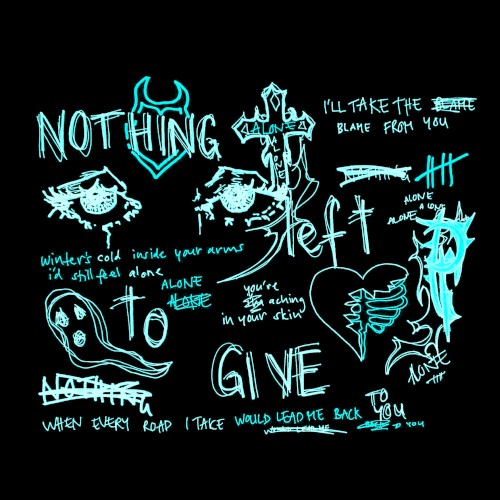 NOTHING
ALONE
I'LL TAKE THE BLAME
BLAME FROM YOU
NOTHING
ALONE
ALONE
ALONE
left
winter's cold inside your arms
i'd still feel alone
ALONE
ALONE
you're
aching
in your skin
to
GIVE
ALONE
NOTHING
WHEN EVERY ROAD I TAKE WOULD LEAD ME BACK TO YOU
WOULD LEAD ME
TO YOU